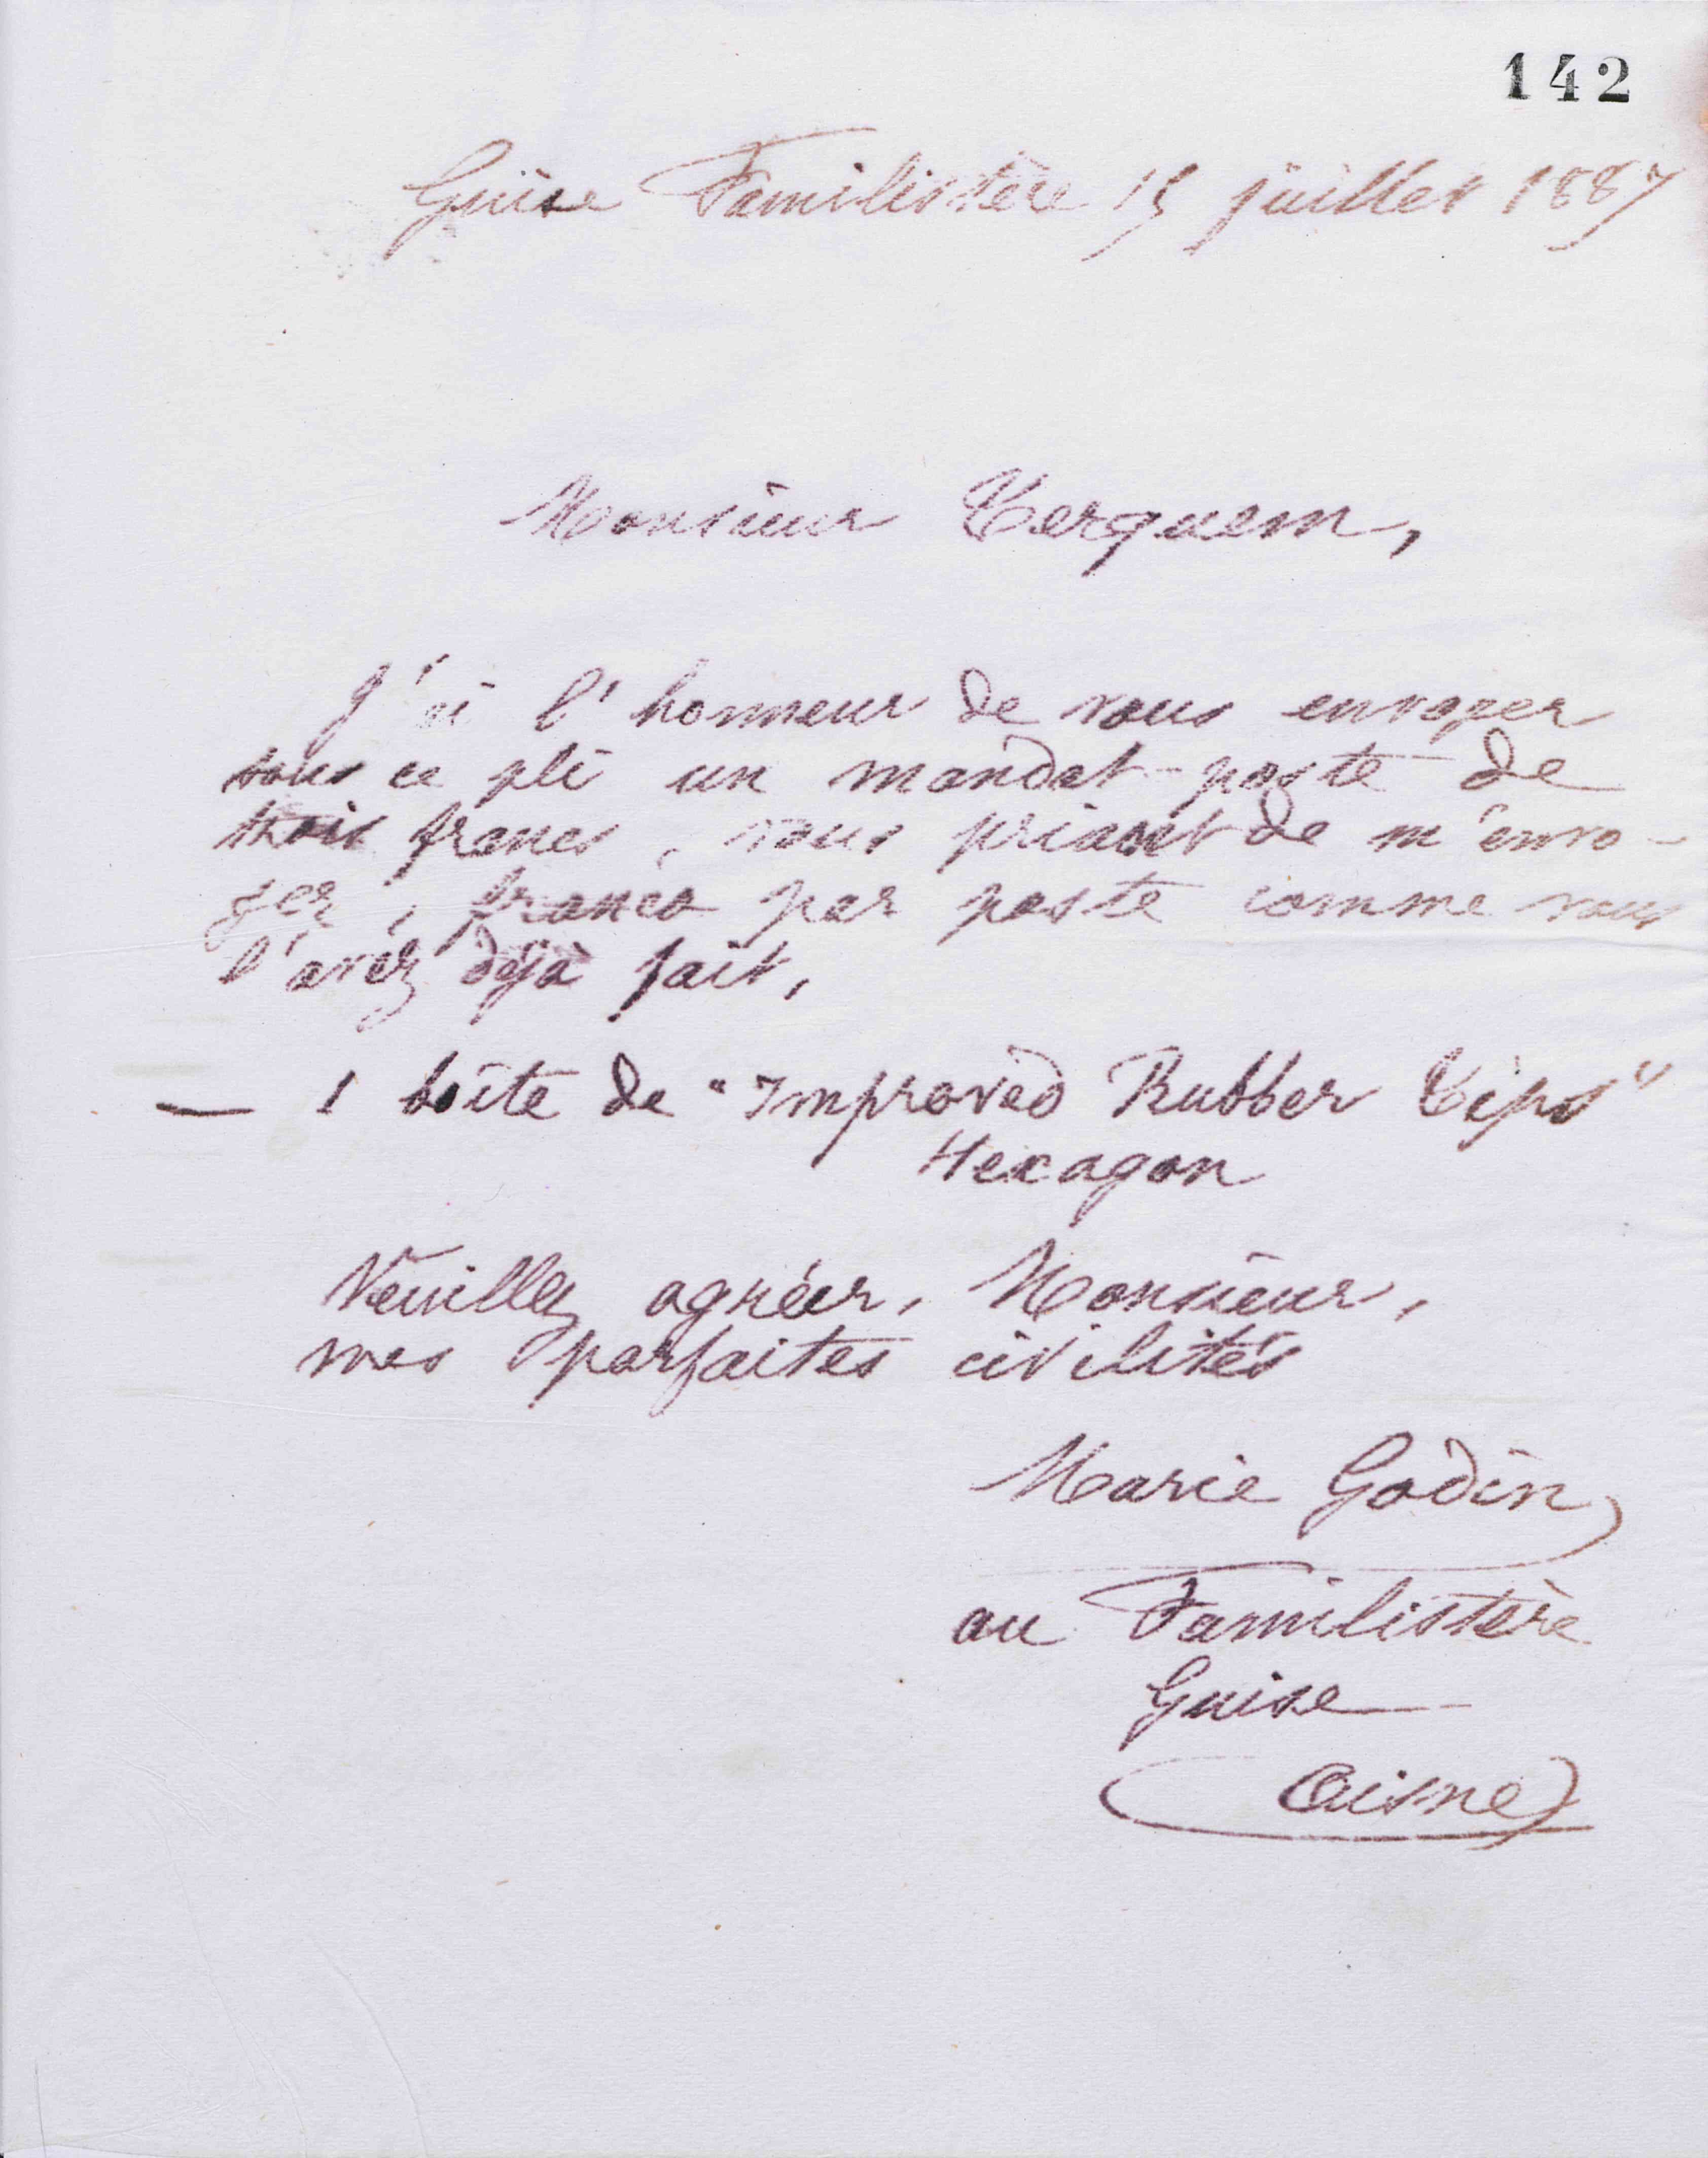 142
Guise Familistère 15 juillet 1887
Monsieur Terquem,
J'ai l'honneur de vous envoyer
sous ce pli un mandat-poste de
trois francs, vous priant de m'envo-
yer, franco par poste comme vous
l'avez déjà fait,
— 1 boîte de "Improved Rubber Tips"
Hexagon
Veuillez agréer, Monsieur,
mes parfaites civilités
Marie Godin
au Familistère
Guise
(Aisne)